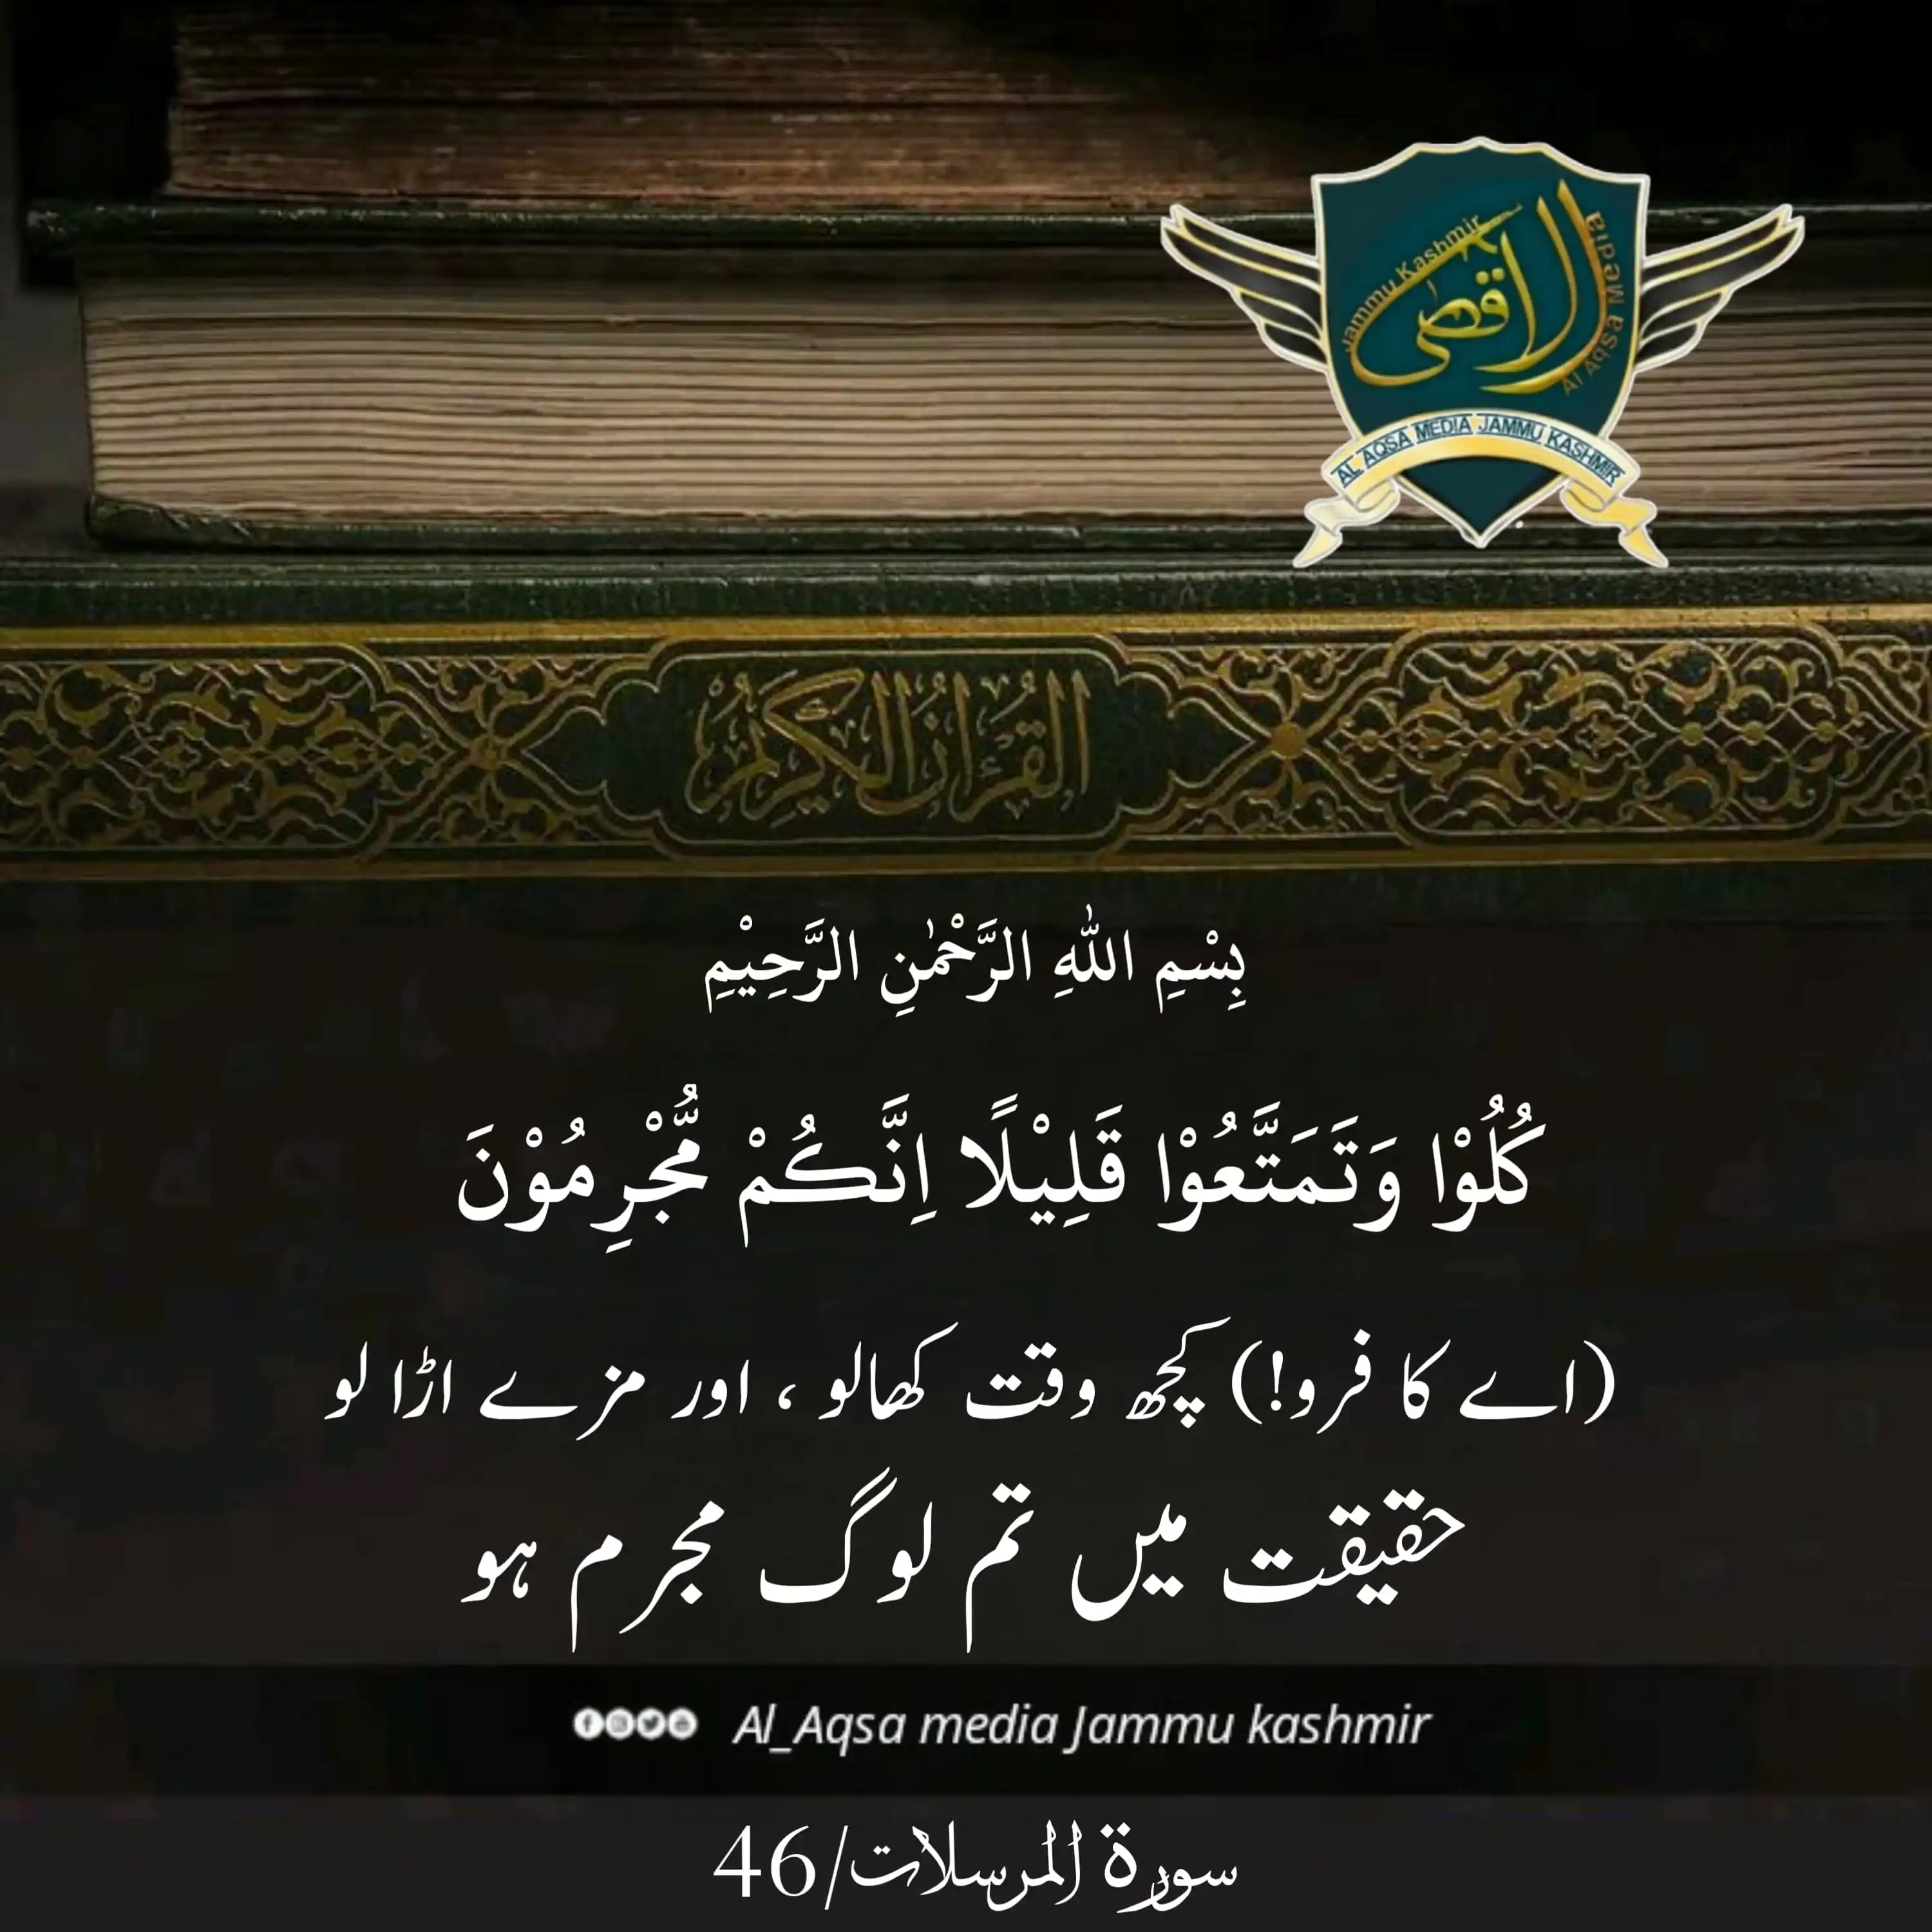 الاقصى
Jammu Kashmir
Al Aqsa Media
AL AQSA MEDIA JAMMU KASHMIR
القرآن الكريم
بِسْمِ اللّٰهِ الرَّحْمٰنِ الرَّحِيْمِ
كُلُوْا وَتَمَتَّعُوْا قَلِيْلًا اِنَّكُمْ مُّجْرِمُوْنَ
(اے کافرو!) کچھ وقت کھالو ، اور مزے اڑا لو
حقیقت میں تم لوگ مجرم ہو
Al_Aqsa media Jammu kashmir
سورة المرسلات/46